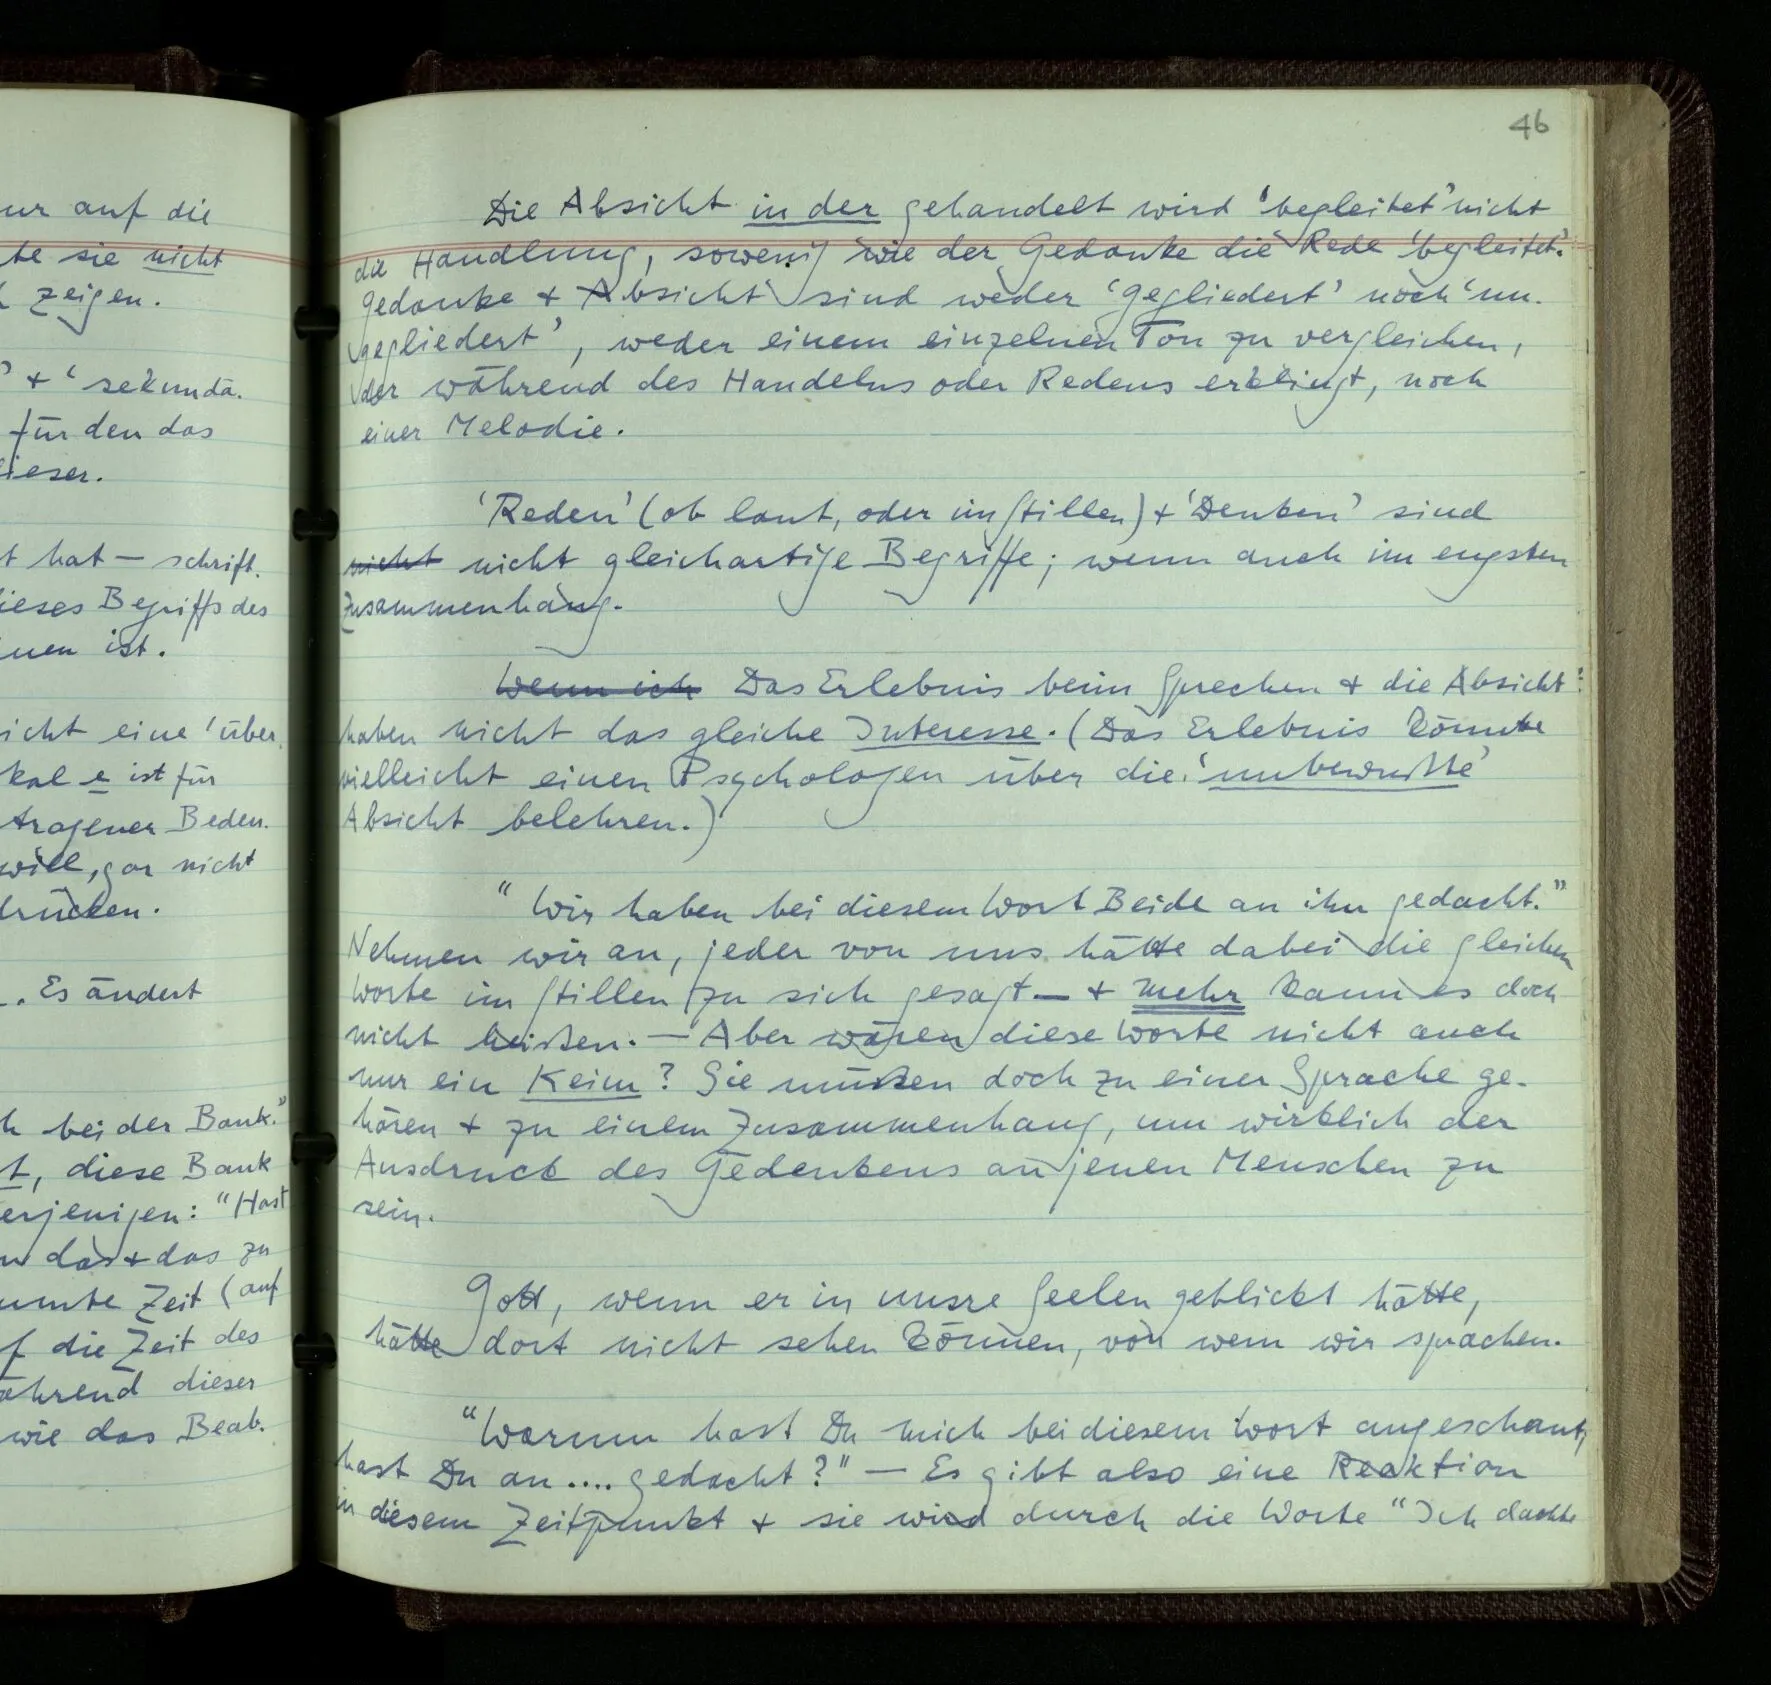 ur auf die
te sie nicht
zeigen.
' + 'sekundä-
für den das
ieser.
t hat — schrift-
ieses Begriffs des
nen ist.
icht eine 'über
kal e ist für
tragener Bedeu-
will, gar nicht
drücken.
. Es ändert
h bei der Bank."
t, diese Bank
erjenigen: "Hast
das + das zu
mmte Zeit (auf
f die Zeit des
ährend dieser
wie das Beab-
46
Die Absicht in der gehandelt wird 'begleitet' nicht
die Handlung, sowenig wie der Gedanke die Rede 'begleitet'.
Gedanke + Absicht sind weder 'gegliedert' noch 'un-
gegliedert', weder einem einzelnen Ton zu vergleichen,
der während des Handelns oder Redens erklingt, noch
einer Melodie.
'Reden' (ob laut, oder im Stillen) + 'Denken' sind
nicht nicht gleichartige Begriffe; wenn auch im engsten
Zusammenhang.
Wenn ich Das Erlebnis beim Sprechen + die Absicht
haben nicht das gleiche Interesse. (Das Erlebnis könnte
vielleicht einen Psychologen über die 'unbewußte'
Absicht belehren.)
"Wir haben bei diesem Wort Beide an ihn gedacht."
Nehmen wir an, jeder von uns hätte dabei die gleichen
Worte im Stillen zu sich gesagt — + mehr kann es doch
nicht heißen. — Aber wären diese Worte nicht auch
nur ein Keim? Sie müssen doch zu einer Sprache ge-
hören + zu einem Zusammenhang, um wirklich der
Ausdruck des Gedenkens an jenen Menschen zu
sein.
Gott, wenn er in unsre Seelen geblickt hätte,
hätte dort nicht sehen können, von wem wir sprachen.
"Warum hast Du mich bei diesem Wort angeschaut,
hast Du an .... gedacht?" — Es gibt also eine Reaktion
in diesem Zeitpunkt + sie wird durch die Worte "Ich dachte